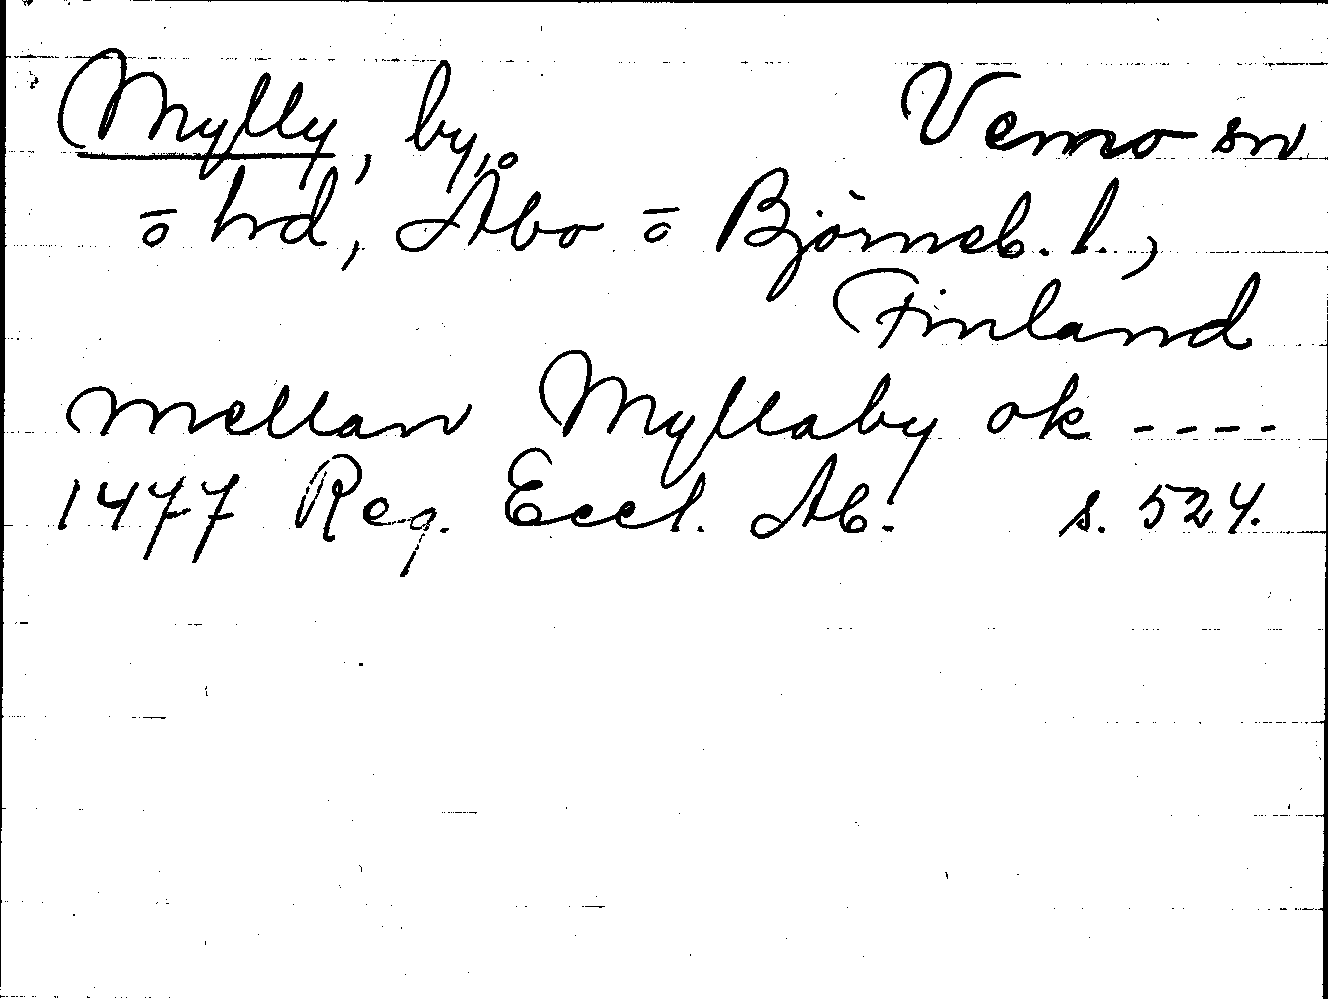 Mylly, by, Vemo sn
o hd, Åbo o Björneb. l.,
Finland
mellan Myllaby ok ----
1477 Reg. Eccl. Ab. s. 524.